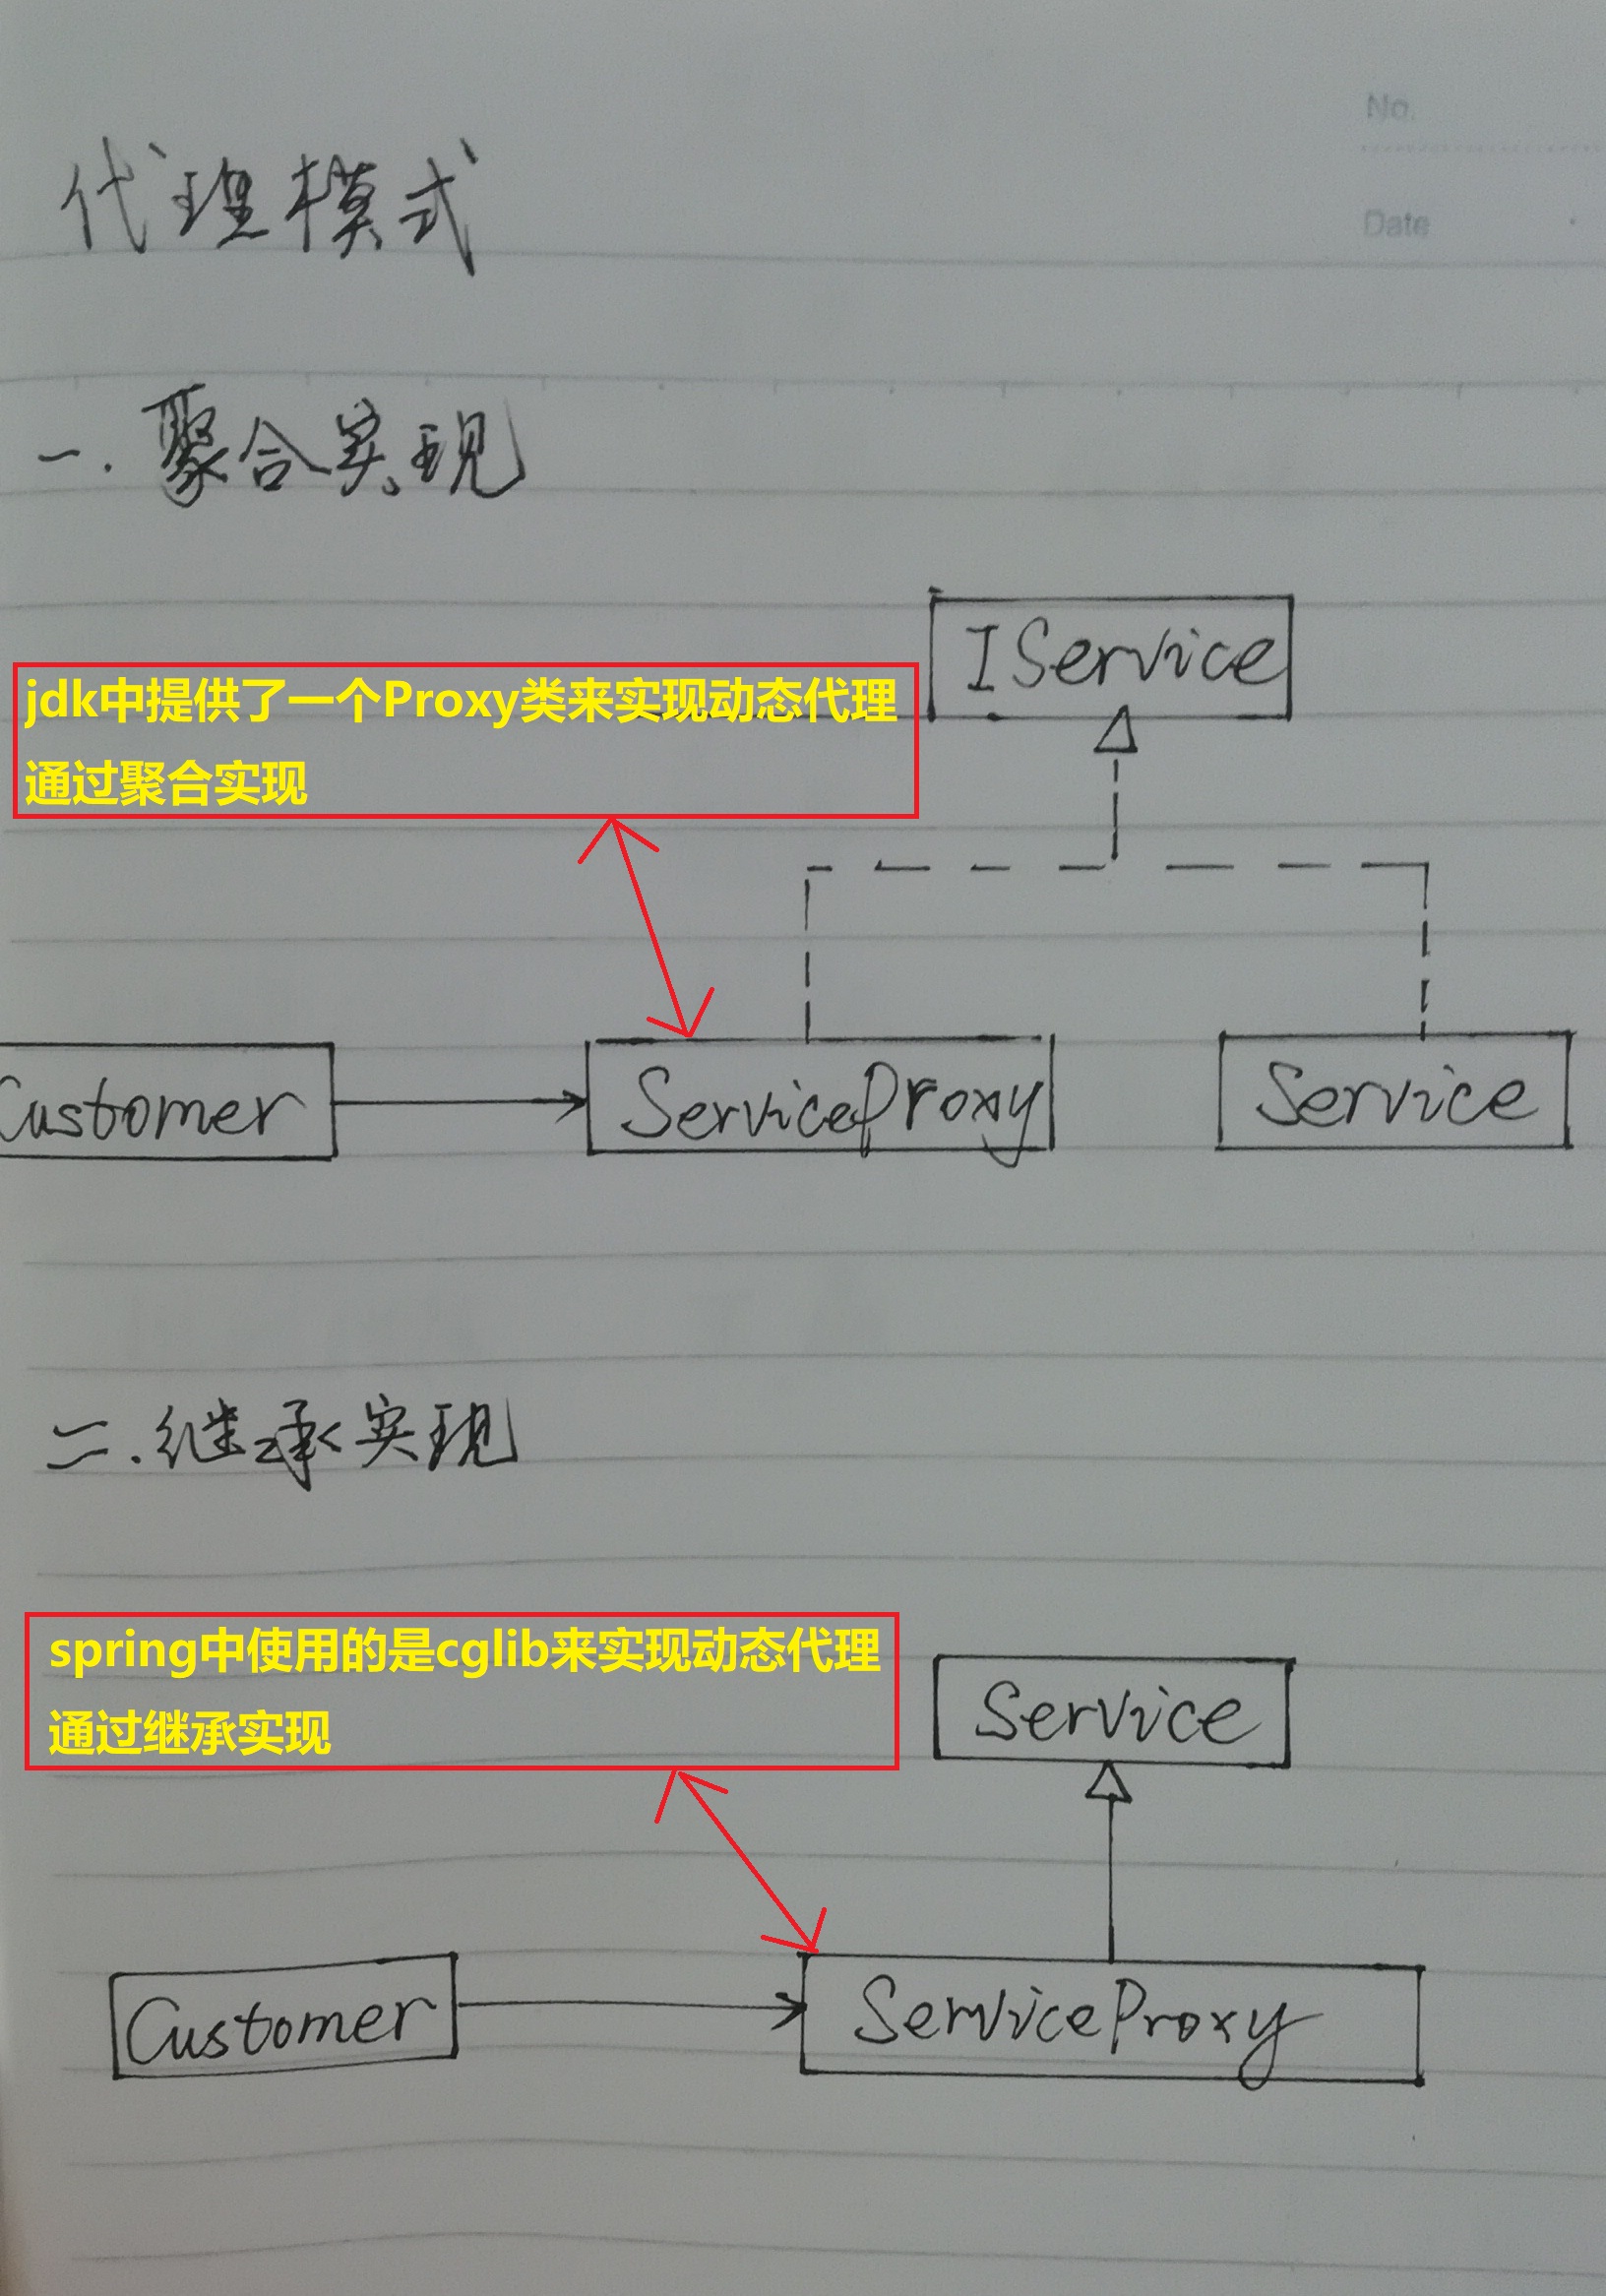 No.
Date
代理模式
一.聚合实现
IService
jdk中提供了一个Proxy类来实现动态代理
通过聚合实现
Customer
ServiceProxy
Service
二.继承实现
spring中使用的是cglib来实现动态代理
通过继承实现
Service
Customer
ServiceProxy